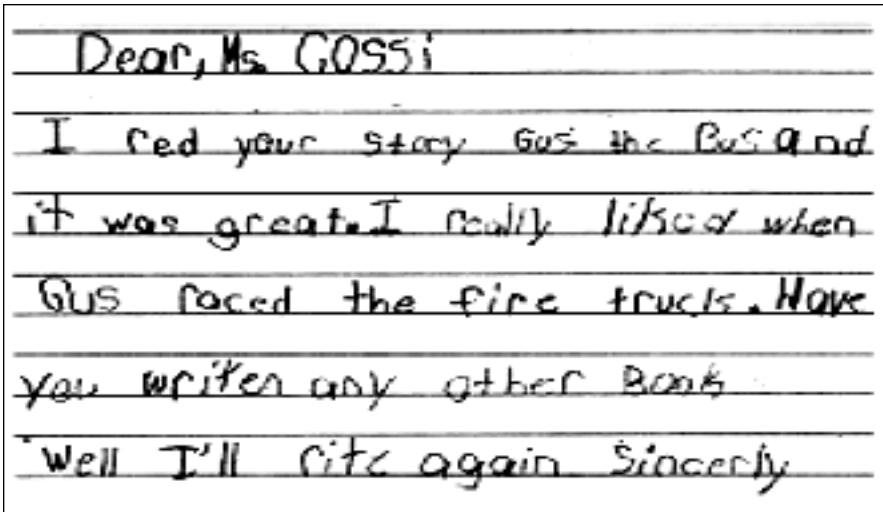 Dear, Ms. Gossi
I red your story Gus the Bus and
it was great. I really liked when
Gus raced the fire truck. Have
you writen any other Book
Well I'll rite again Sincerly